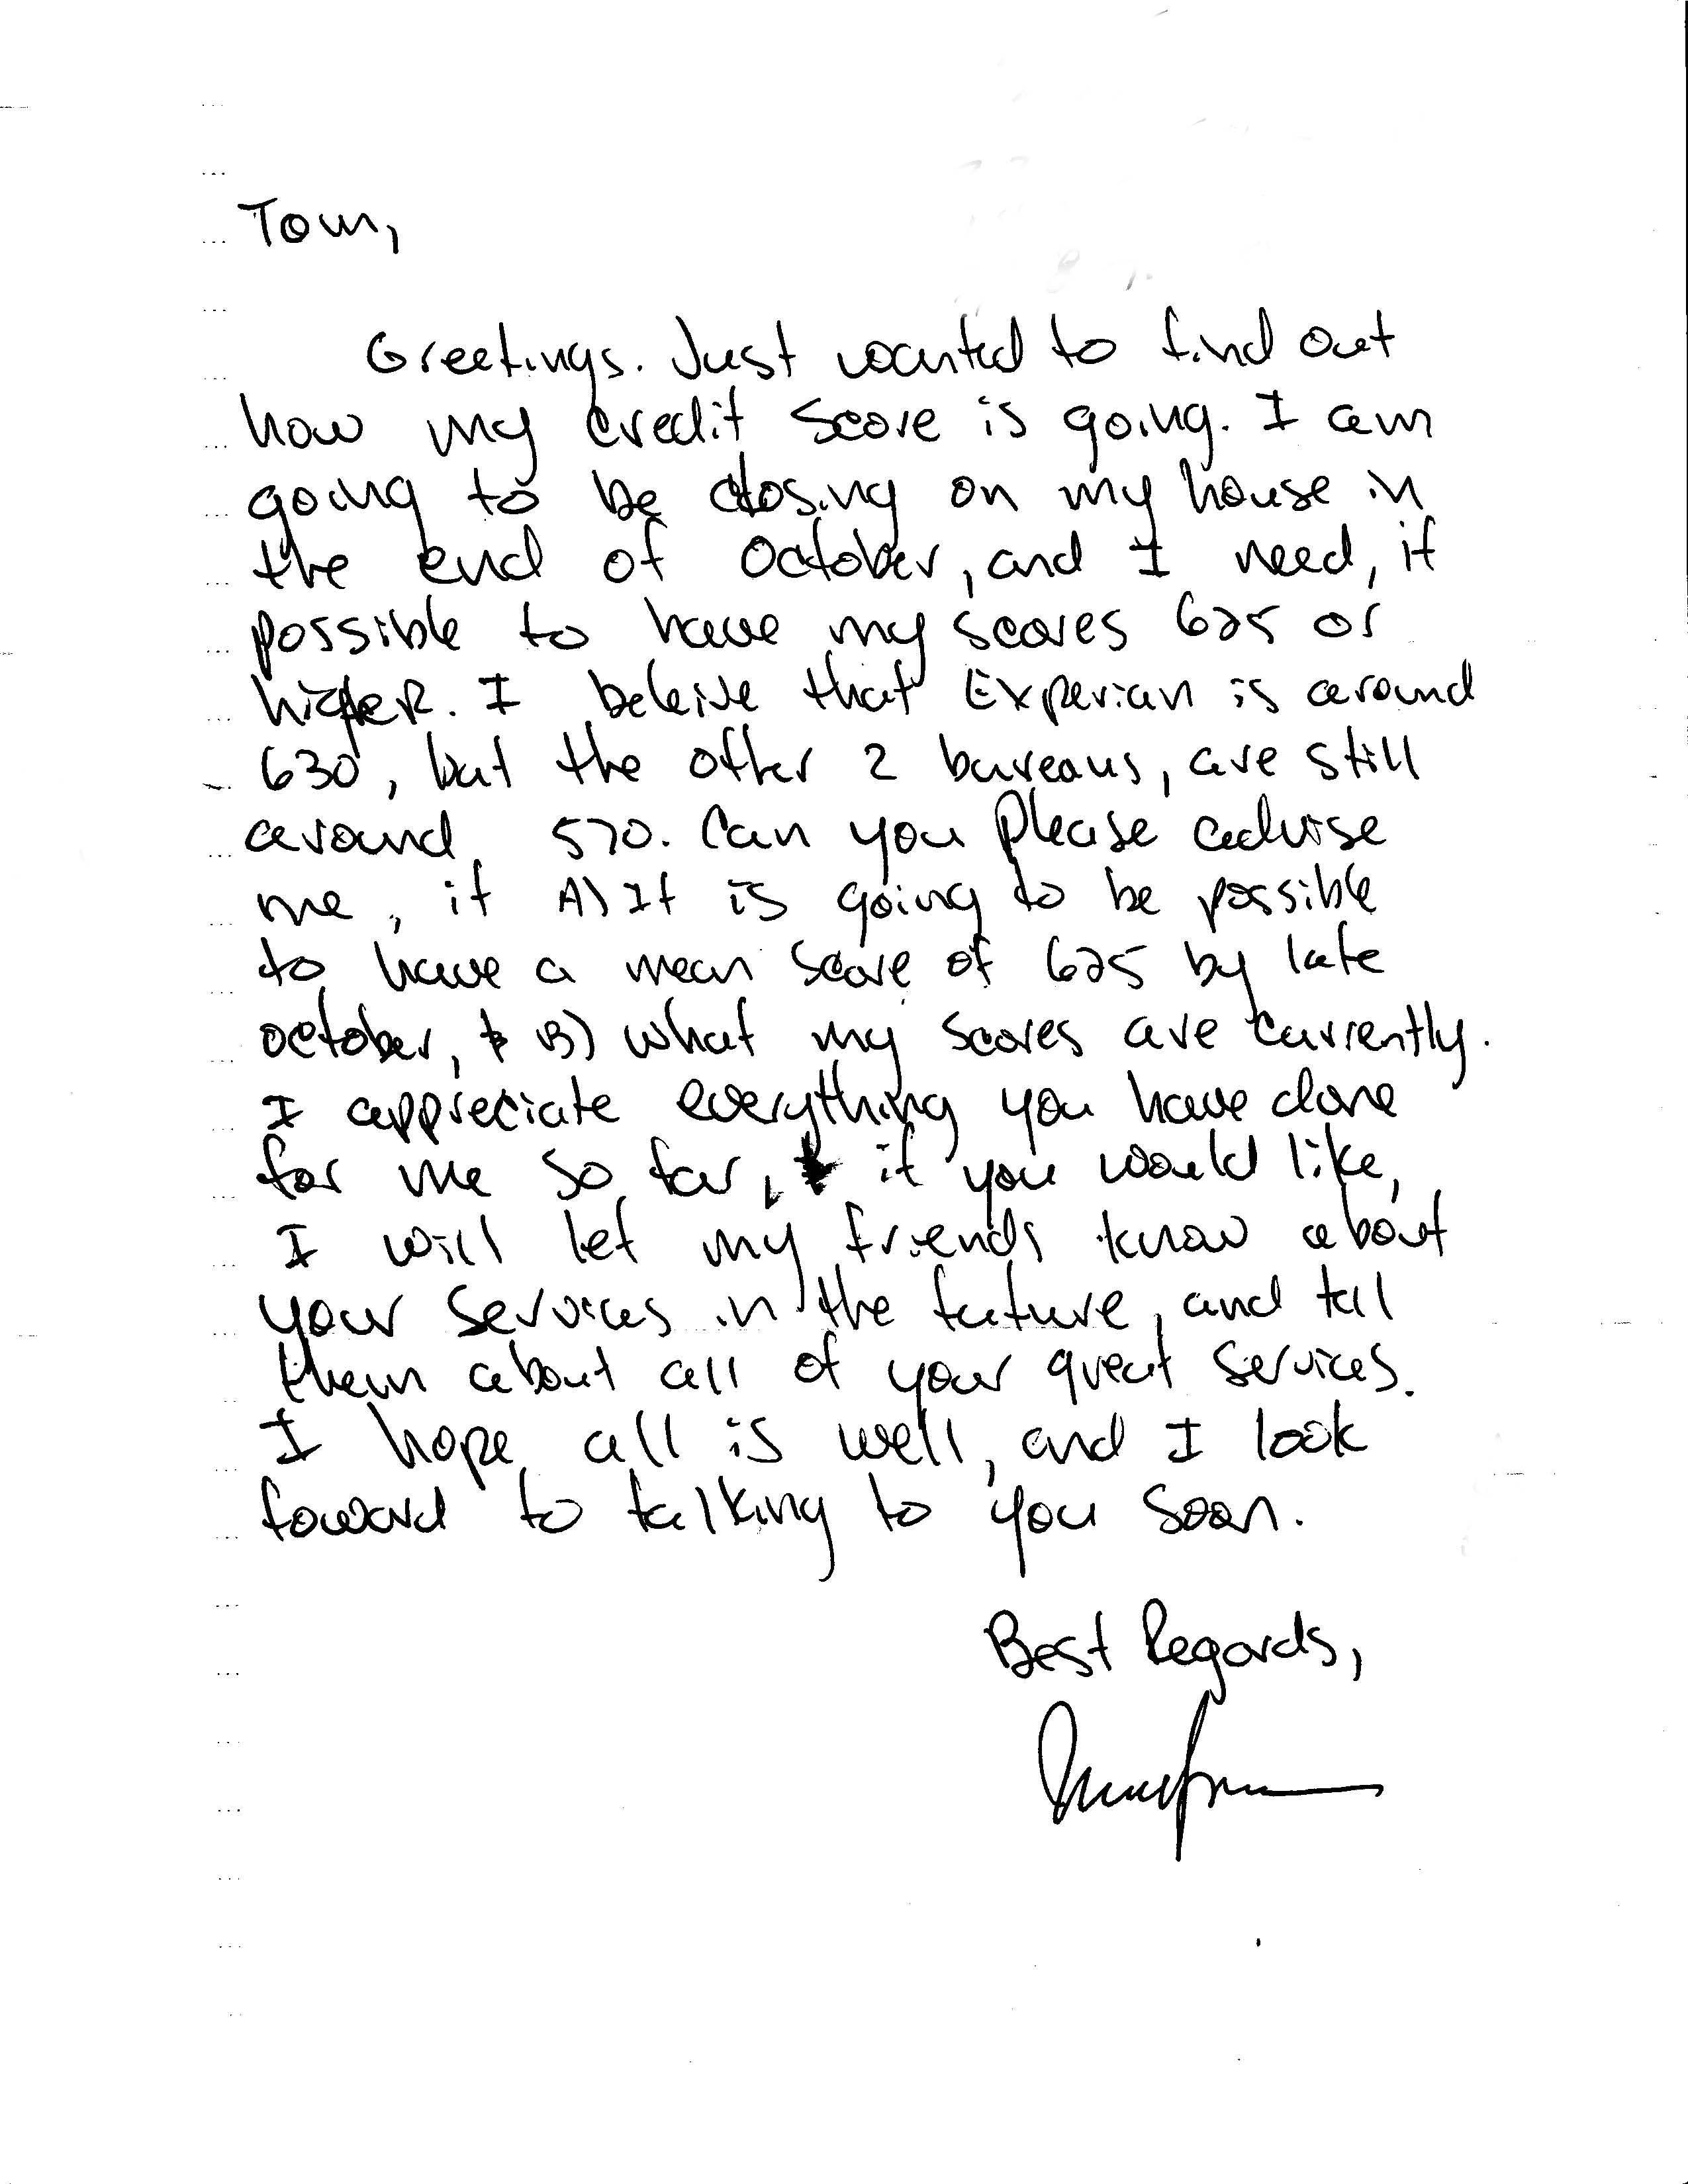 Tom,
Greetings. Just wanted to find out
how my credit score is going. I am
going to be closing on my house in
the end of October, and I need, if
possible to have my scores 625 or
higher. I beleive that Experian is around
630, but the other 2 bureaus, are still
around 570. Can you please advise
me, if A) It is going to be possible
to have a mean score of 625 by late
october, & B) what my scores are currently.
I appreciate everything you have done
for me so far, & if you would like,
I will let my friends know about
your services in the future, and tell
them about all of your great services.
I hope all is well, and I look
foward to talking to you soon.
Best Regards,